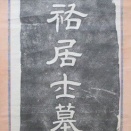 祐居士墓